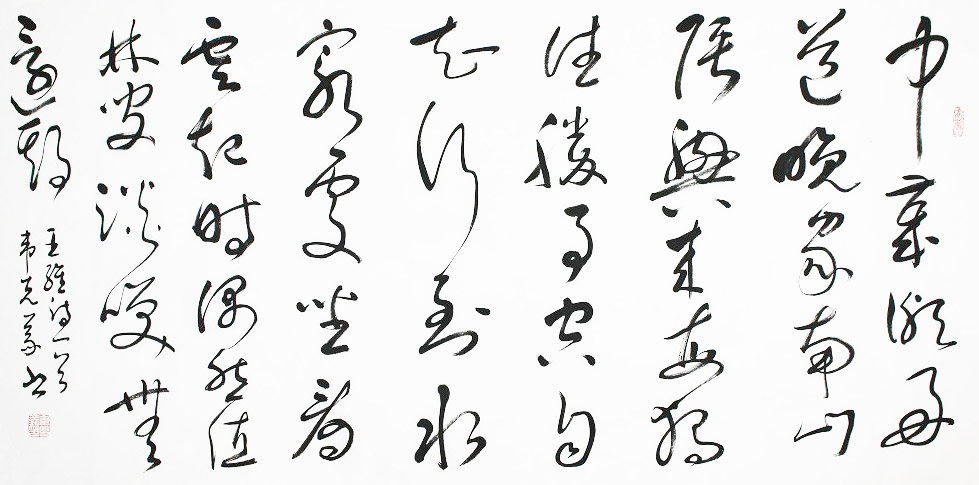 中歲頗好
道晚家南山
陲興來每獨
往勝事空自
知行到水
窮處坐看
雲起時偶然值
林叟談咲無
還期
王維詩一首
韦克義书